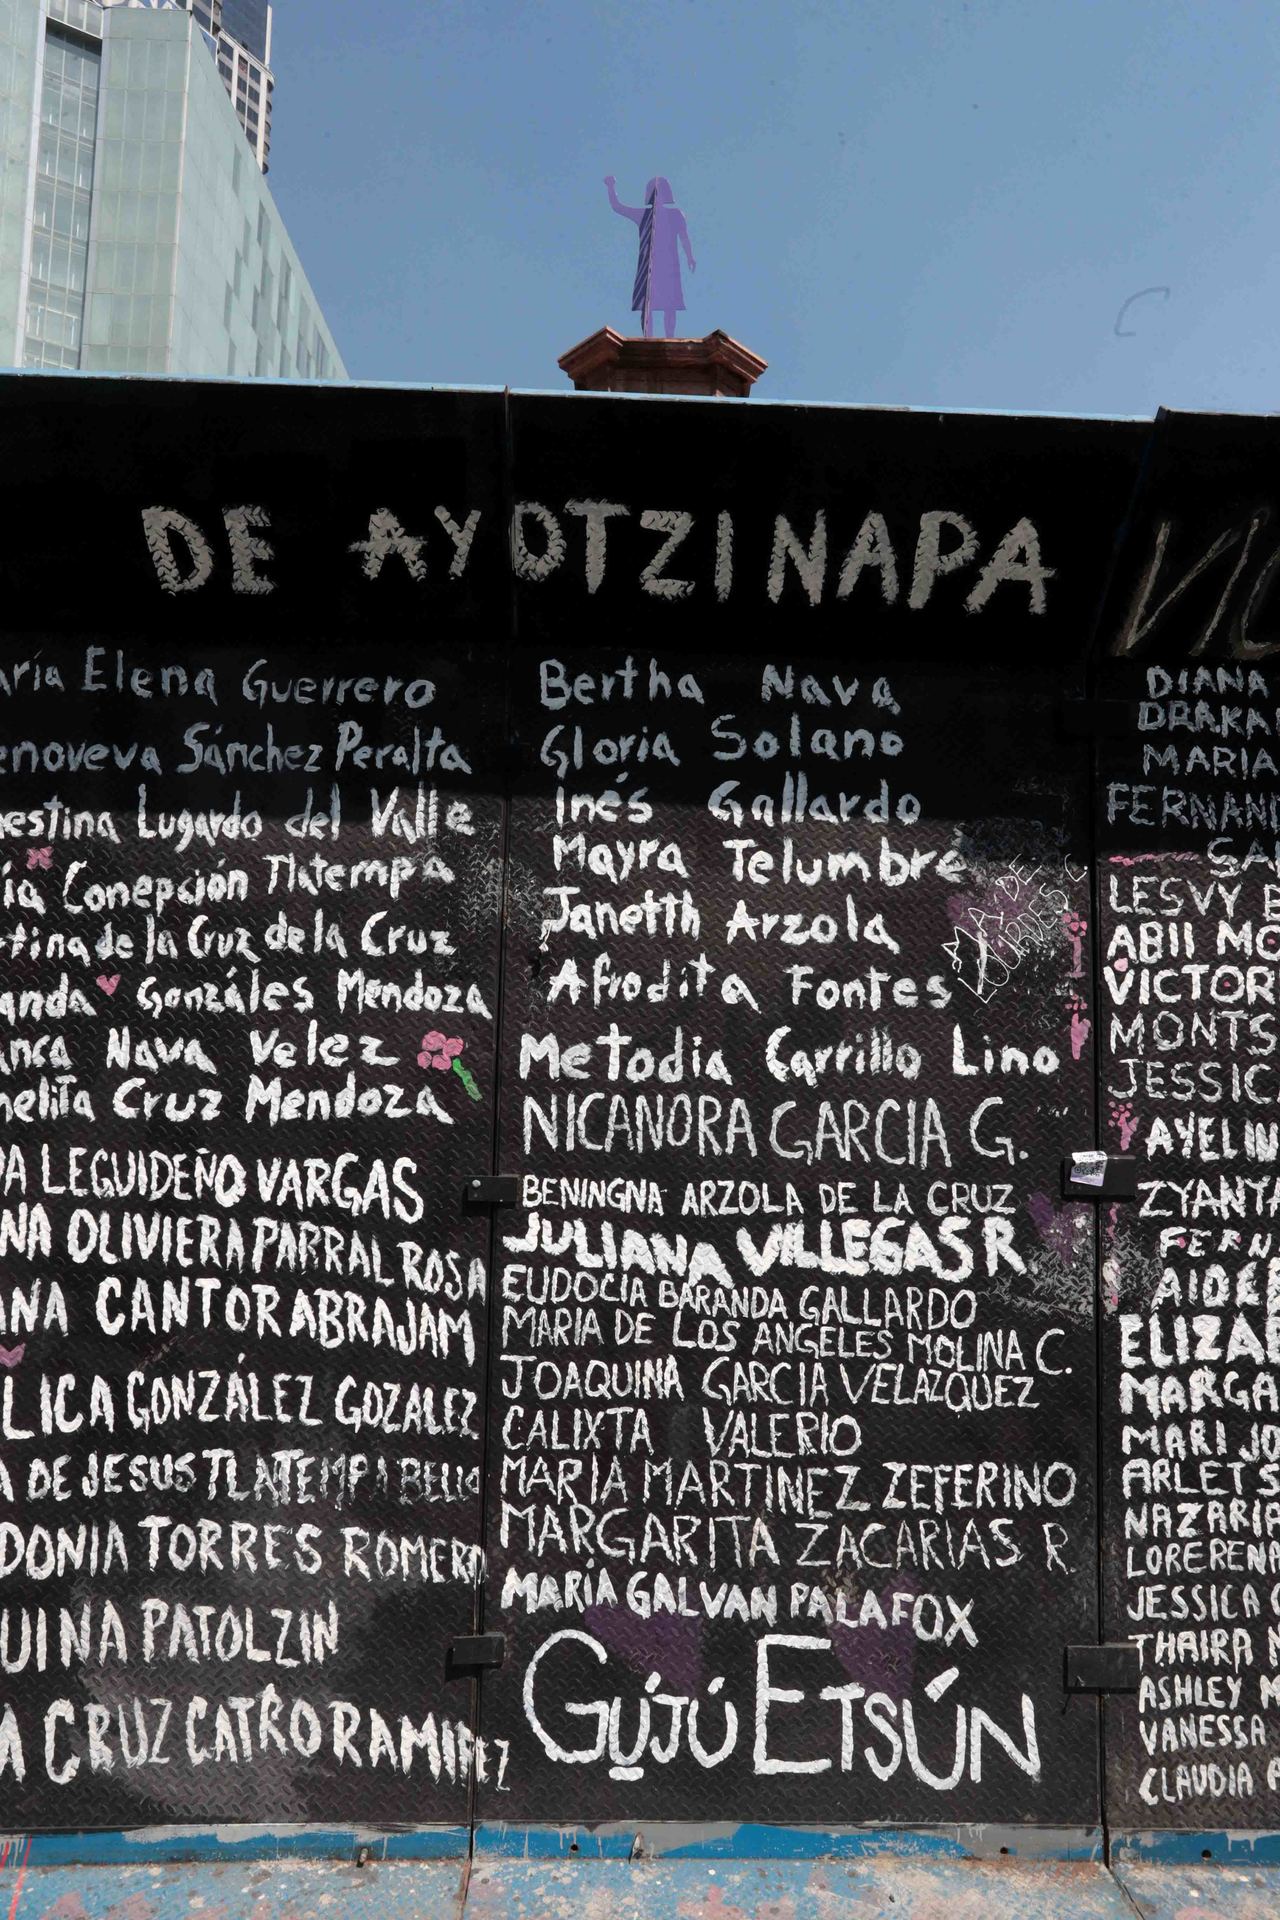 DE AYOTZINAPA
aría Elena Guerrero
enoveva Sánchez Peralta
nestina Lugardo del Valle
ía Concepción Tlatempa
rtina de la Cruz de la Cruz
anda Gonzáles Mendoza
anca Nava Velez
melita Cruz Mendoza
DA LEGUIDEÑO VARGAS
NA OLIVIERA PARRAL ROSA
ANA CANTOR ABRAJAM
LICA GONZÁLEZ GOZALEZ
A DE JESUS TLATEMPA BELLO
DONIA TORRES ROMERO
UINA PATOLZIN
A CRUZ CATRO RAMIREZ
Bertha Nava
Gloria Solano
Inés Gallardo
Mayra Telumbre
Janetth Arzola
Afrodita Fontes
MA. DE LOURDES
Metodia Carrillo Lino
NICANORA GARCIA G.
BENINGNA ARZOLA DE LA CRUZ
JULIANA VILLEGAS R.
EUDOCIA BARANDA GALLARDO
MARIA DE LOS ANGELES MOLINA C.
JOAQUINA GARCIA VELAZQUEZ
CALIXTA VALERIO
MARIA MARTINEZ ZEFERINO
MARGARITA ZACARIAS R.
MARÍA GALVAN PALAFOX
GÚJÚ ETSÚN
DIANA
DRAKA
MARIA
FERNAND
SA
LESVY B
ABII MO
VICTOR
MONTS
JESSIC
AYELIN
ZYANYA
FERN
AIDE
ELIZAB
MARGA
MARI JO
ARLET S
NAZARI
LORE RENA
JESSICA
THAIRA
ASHLEY M
VANESSA
CLAUDIA